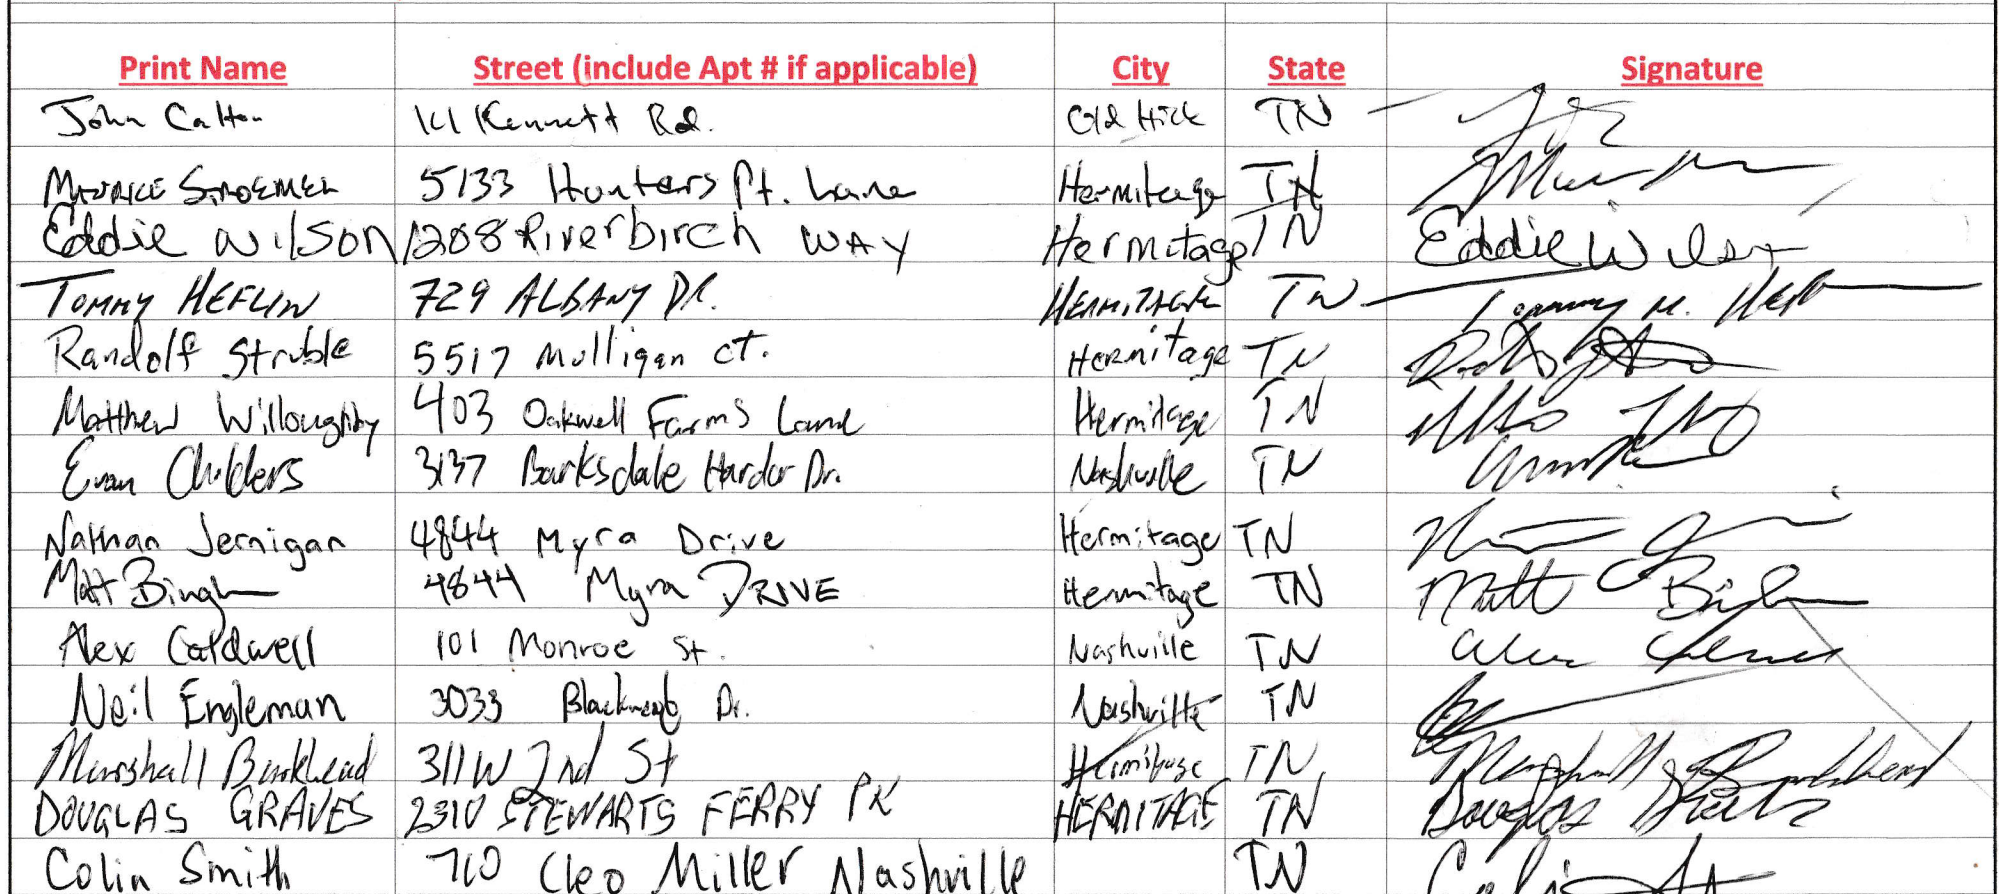 Print Name Street (include Apt # if applicable) City State Signature
John Calton Kennett Rd. Old Hick TN
5133 Hunters Pt. Lane Hermitage TN
Eddie Wilson 1208 Riverbirch WAY Hermitage TN Eddie Wilson
TOMMY HEFLIN 729 ALBANY DR. HERMITAGE TN Tommy M. Heflin
Randolf Struble 5517 Mulligan ct. Hermitage TN
Matthew Willoughby 403 Oakwell Farms Lane Hermitage TN
Evan Childers 3137 Barksdale Harbor Dr. Nashville TN
Nathan Jernigan 4844 Myra Drive Hermitage TN
Matt Bingham 4844 Myra DRIVE Hermitage TN Matt
Alex Caldwell 101 Monroe St. Nashville TN
Neil Engleman 3033 Dr. Nashville TN
Marshall Burkhead 311 W 2nd St Hermitage TN Marshall Burkhead
DOUGLAS GRAVES 2310 STEWARTS FERRY PK HERMITAGE TN Douglas
Colin Smith 710 Cleo Miller Nashville TN